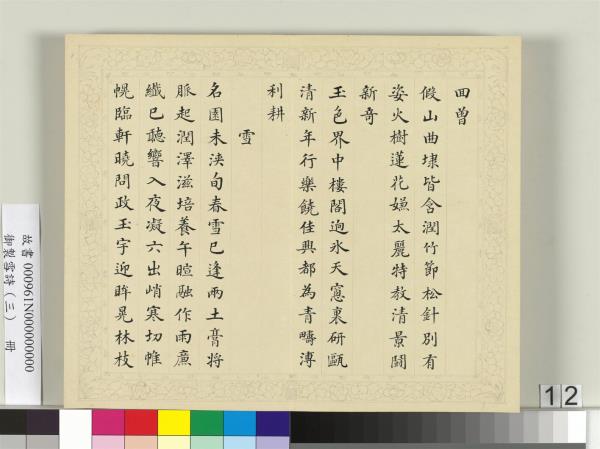 回曾
假山曲埭皆含潤竹節松針別有
姿火樹蓮花嫌太麗特教清景鬪
新奇
玉色界中樓閣迥氷天窻裏研甌
清新年行樂饒佳興都為青疇溥
利耕
雪
名園未浹旬春雪已逢兩土膏將
脈起潤澤滋培養午暄融作雨廉
纖已聽響入夜凝六出峭寒切帷
幌臨軒曉問政玉宇迎眸晃林枝
故書 000961N000000000
御製雪詩(三) 冊
12